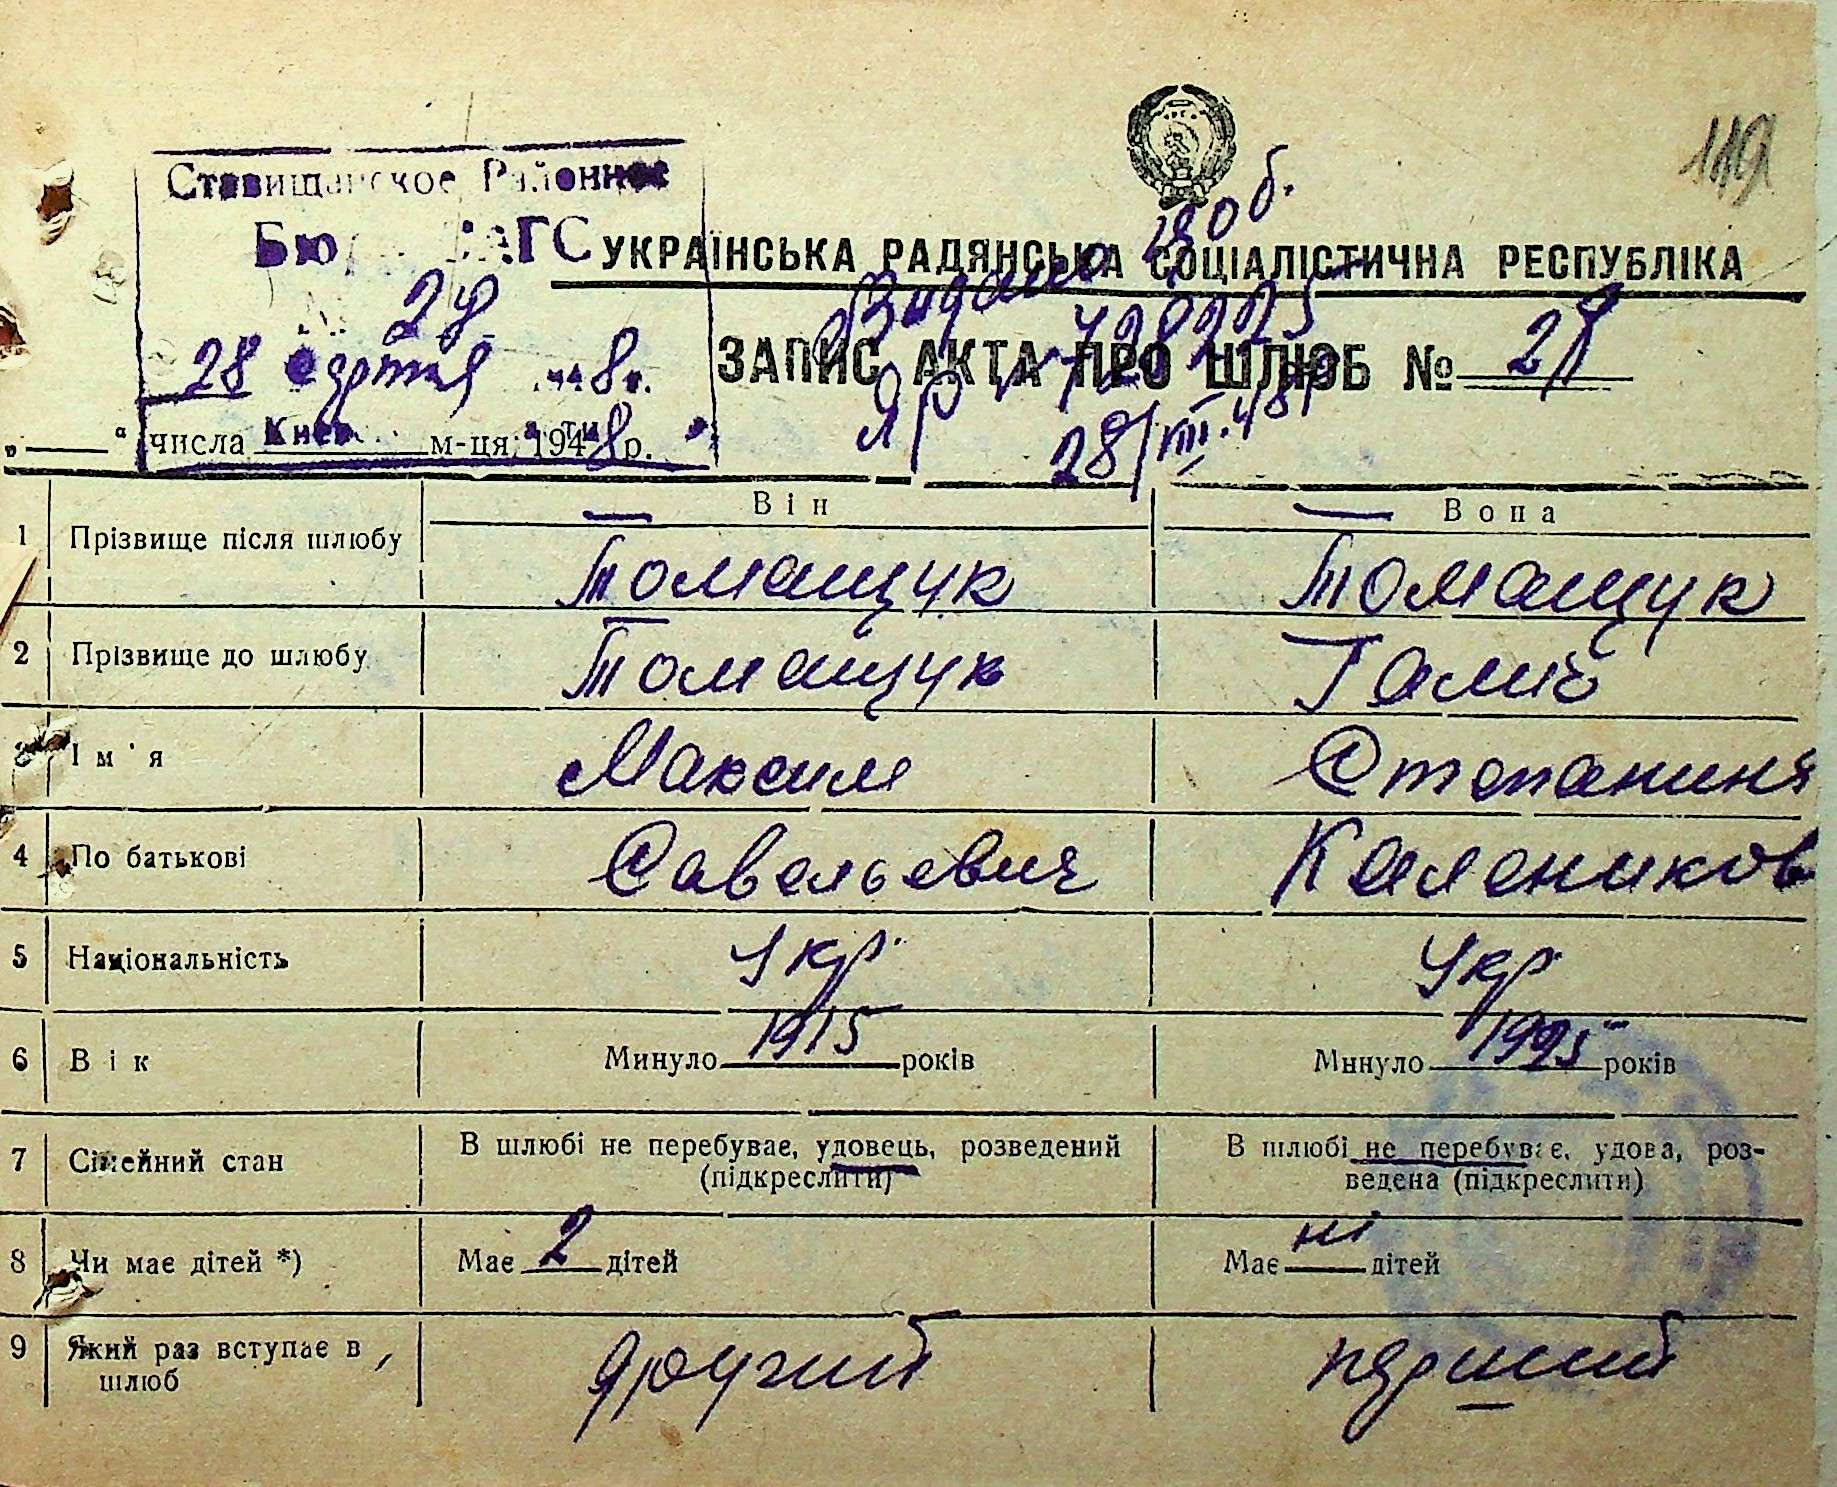 119
Ставищанское Районное
Бю ЗАГС
УКРАЇНСЬКА РАДЯНСЬКА СОЦІАЛІСТИЧНА РЕСПУБЛІКА
№ 28
Видано
28 серпня 1948 г.
ЗАПИС АКТА ПРО ШЛЮБ № 28
28/VIII.48р
„ “ числа м-ця, 1948 р.
Він Вона
1 Прізвище після шлюбу Томащук Томащук
2 Прізвище до шлюбу Томащук Галич
3 Ім'я Максим Степаниня
4 По батькові Савельевич Калеников
5 Національність Укр. Укр
6 Вік Минуло 1915 років Минуло 1925 років
7 Сімейний стан В шлюбі не перебуває, удовець, розведений (підкреслити) В шлюбі не перебуває, удова, роз-
ведена (підкреслити)
8 Чи має дітей *) Має 2 дітей Має ні дітей
9 Який раз вступає в шлюб другий перший